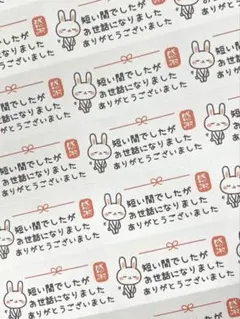 短い間でしたが
お世話になりました
ありがとうございました
感謝
短い間でしたが
お世話になりました
ありがとうございました
感謝
短い間でしたが
お世話になりました
ありがとうございました
感謝
短い間でしたが
お世話になりました
ありがとうございました
感謝
短い間でしたが
お世話になりました
ありがとうございました
感謝